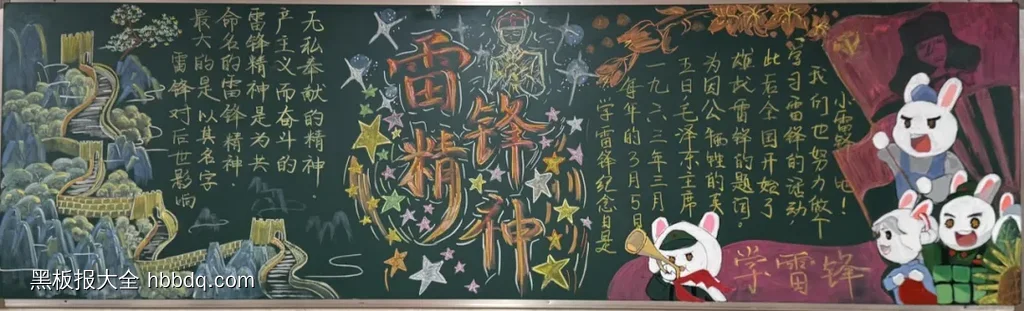 雷锋对后世影响
最大的是以其名字
命名的雷锋精神，
雷锋精神是为共
产主义而奋斗的
无私奉献的精神.
雷锋精神
学雷锋纪念日是
每年的3月5日
一九六三年三月
五日毛泽东主席
为因公牺牲的英
雄战雷锋的题词。
此后全国开始了
学习雷锋的活动
我们也努力做个
小雷锋吧！
学雷锋
黑板报大全 hbbdq.com